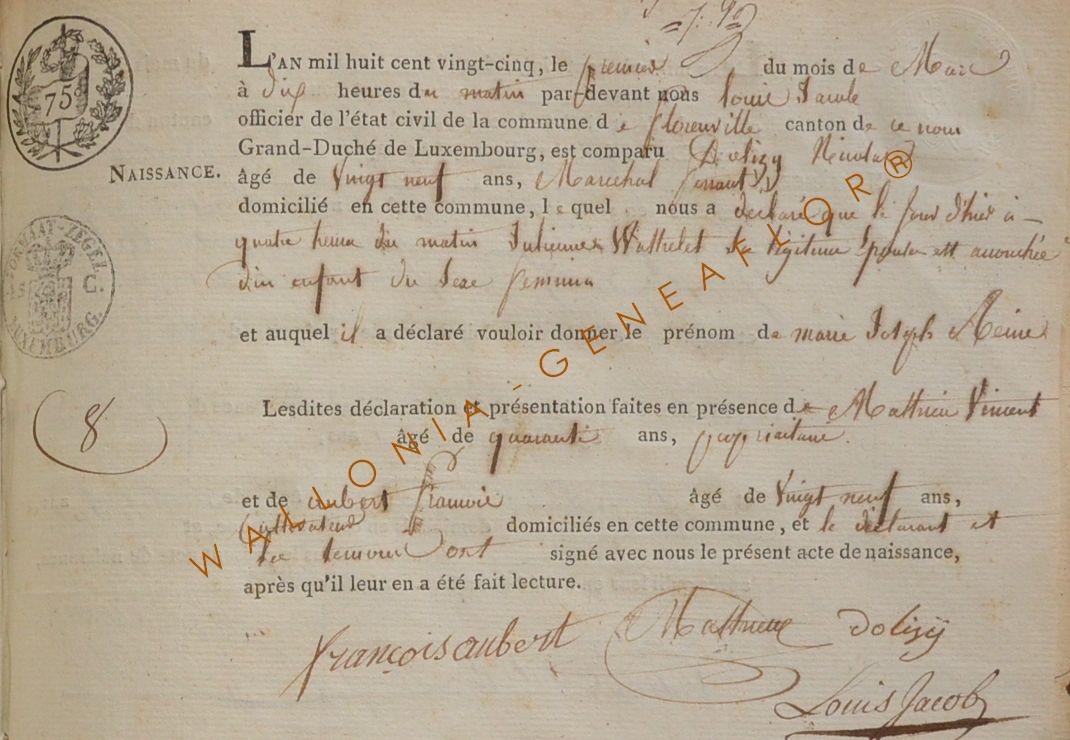 L'AN mil huit cent vingt-cinq, le premier du mois de Mars
à dix heures du matin par-devant nous louis Jacob
officier de l'état civil de la commune de florenville canton de ce nom
Grand-Duché de Luxembourg, est comparu Dolizy Nicolas
NAISSANCE. âgé de Vingt neuf ans, Marechal ferrant
domicilié en cette commune, lequel nous a declaré que le jour d'hier à
quatre heures du matin Julienne Wathelet sa légitime épouse est accouchée
d'un enfant du sexe feminin
et auquel il a déclaré vouloir donner le prénom de marie Joseph Reine
8
Lesdites déclaration et présentation faites en présence de Mathieu Vincent
âgé de quarante ans, propriaitaire.
et de aubert francois âgé de Vingt neuf ans,
Cultivateur domiciliés en cette commune, et le déclarant et
les temoins ont signé avec nous le présent acte de naissance,
après qu'il leur en a été fait lecture.
françois aubert Mathieu Dolizy
Louis Jacob
75
LUXEMBURG.
WALLONIA-GENEAFLOR®